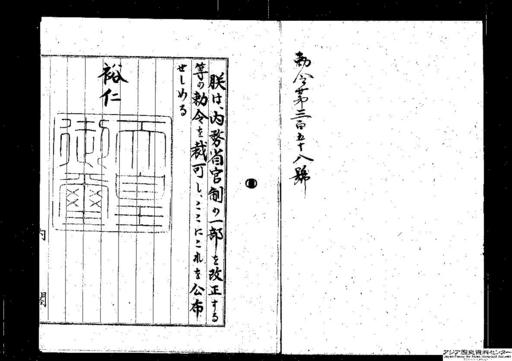 勅令第三百五十八號
朕は、内務省官制の一部を改正する
等の勅令を裁可し、ここにこれを公布
せしめる
裕仁
天皇
御璽
内閣
アジア歴史資料センター